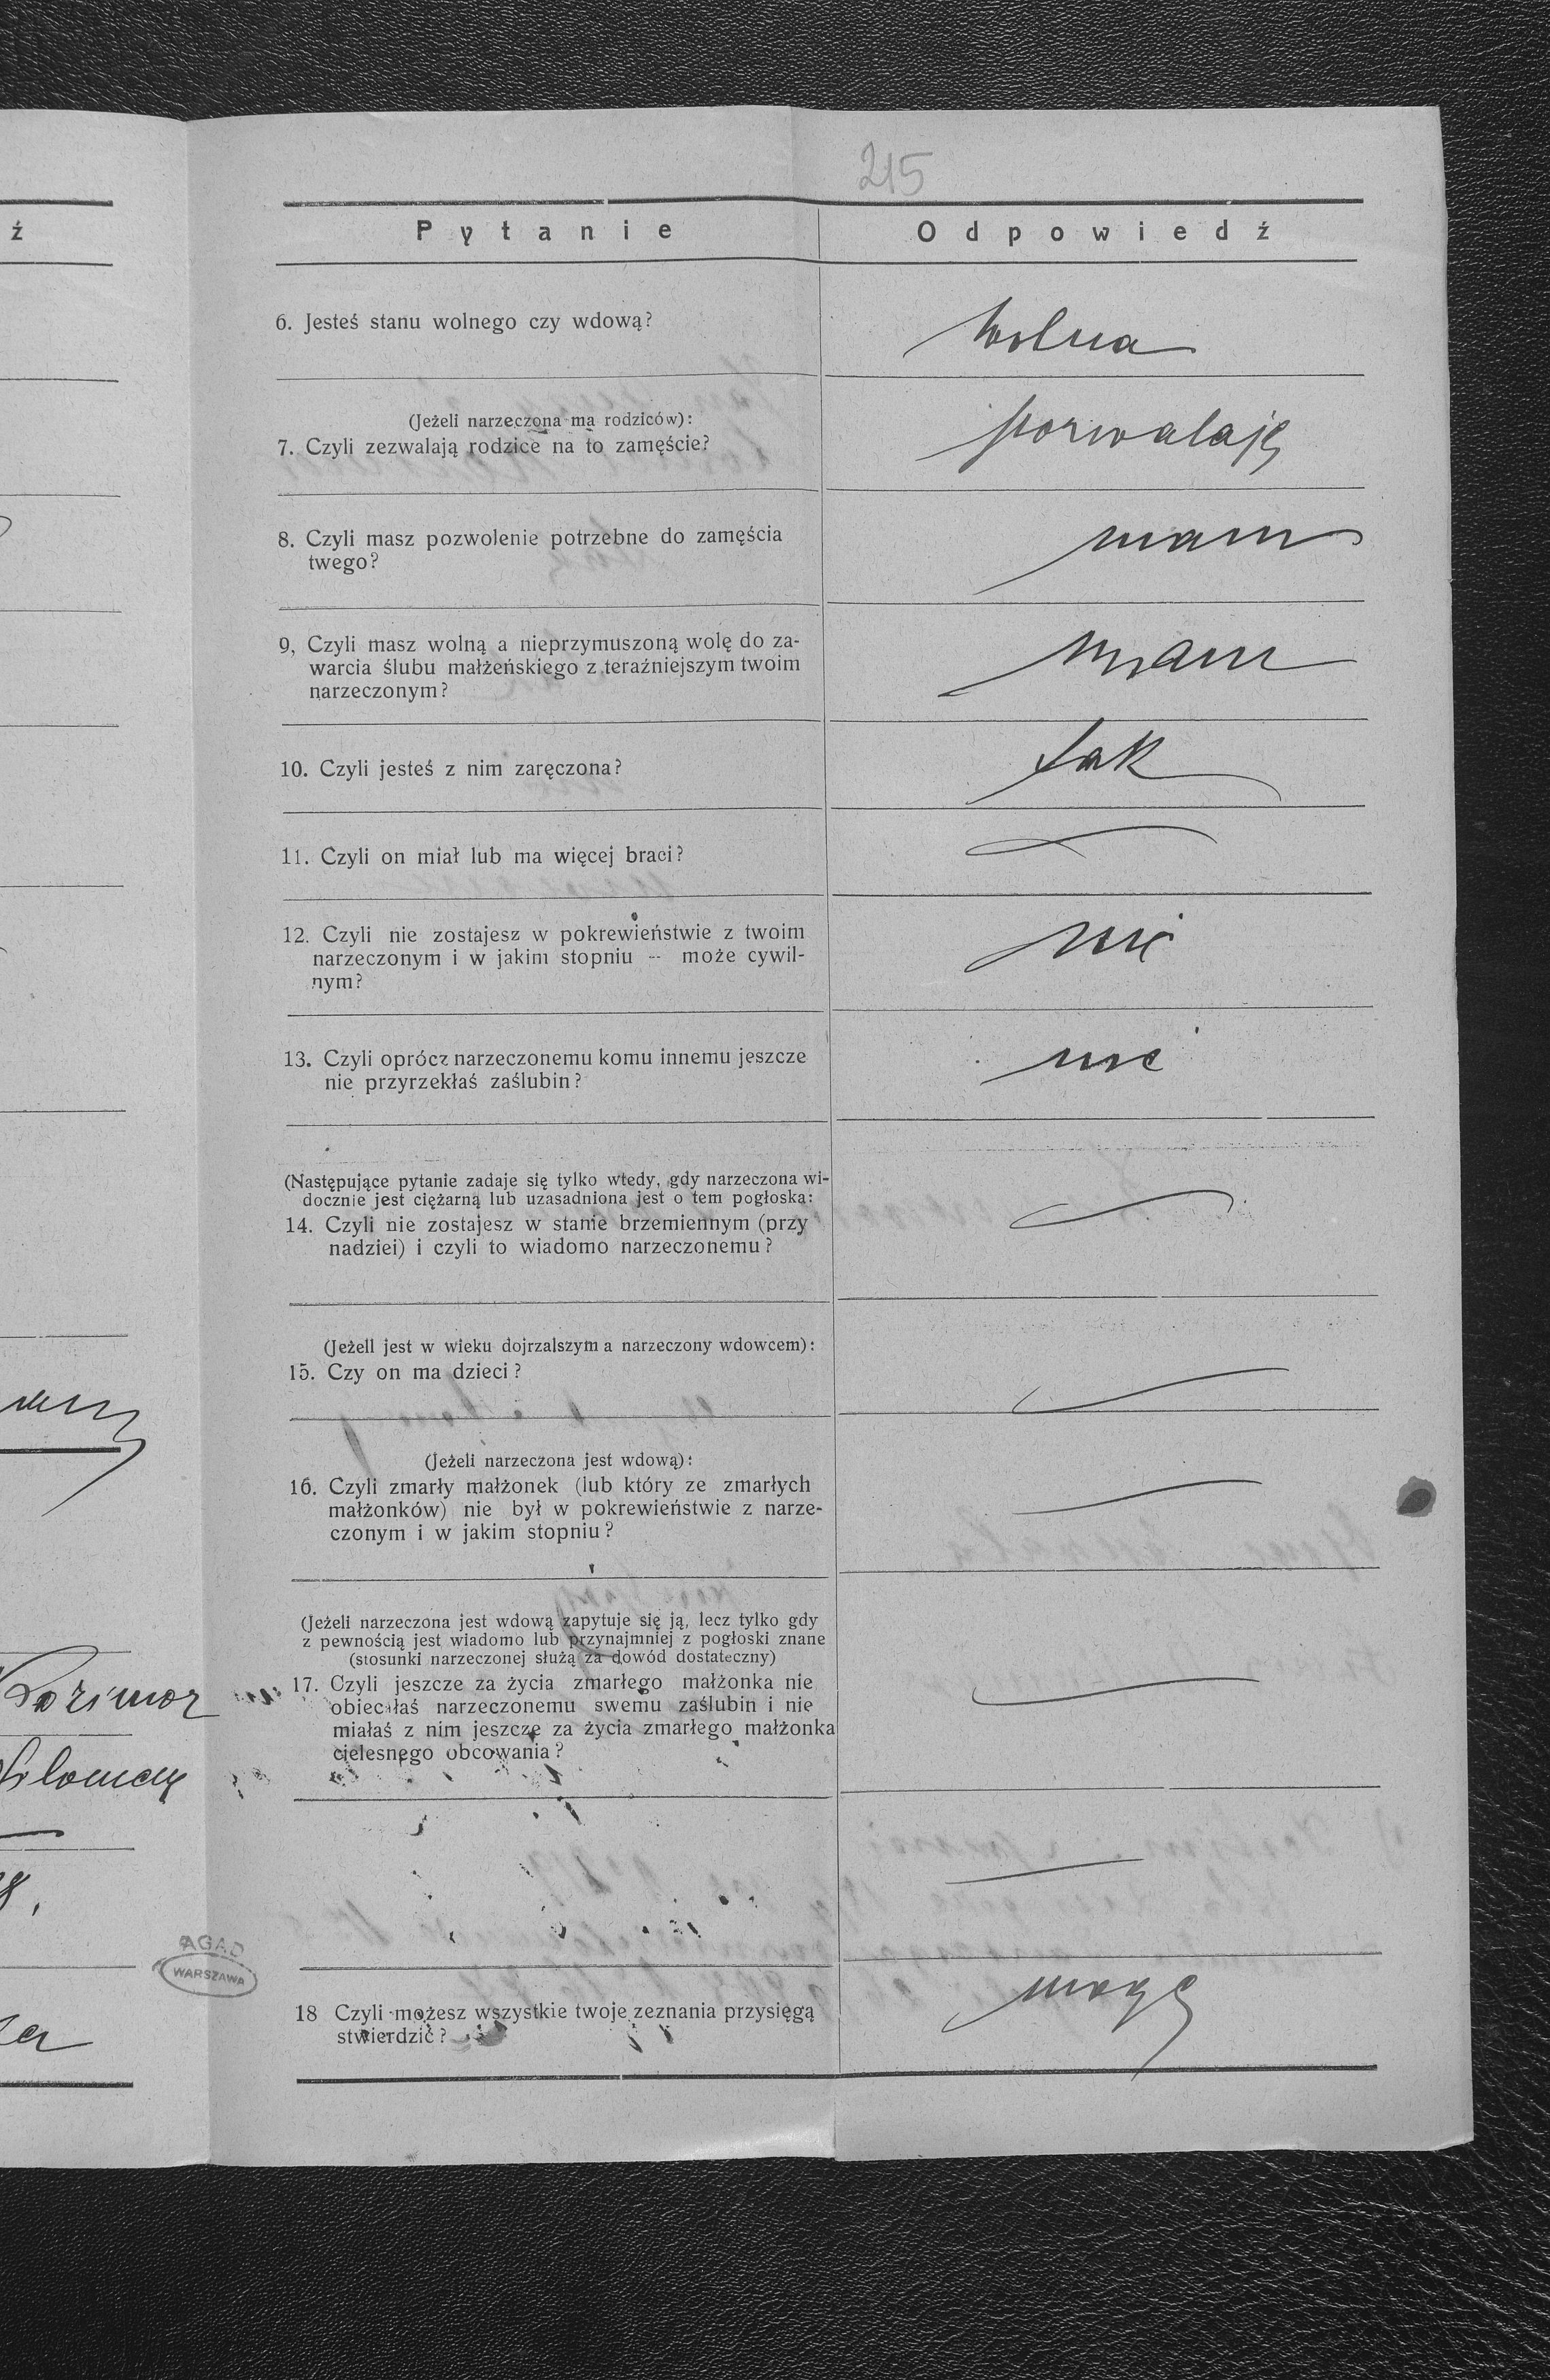 215
ź
Pytanie
Odpowiedź
6. Jesteś stanu wolnego czy wdową?
wolna
(Jeżeli narzeczona ma rodziców):
7. Czyli zezwalają rodzice na to zamęście?
pozwalają
8. Czyli masz pozwolenie potrzebne do zamęścia
twego?
mam
9, Czyli masz wolną a nieprzymuszoną wolę do za-
warcia ślubu małżeńskiego z teraźniejszym twoim
narzeczonym?
mam
10. Czyli jesteś z nim zaręczona?
tak
11. Czyli on miał lub ma więcej braci?
12. Czyli nie zostajesz w pokrewieństwie z twoim
narzeczonym i w jakim stopniu -- może cywil-
nym?
nie
13. Czyli oprócz narzeczonemu komu innemu jeszcze
nie przyrzekłaś zaślubin?
nie
(Następujące pytanie zadaje się tylko wtedy, gdy narzeczona wi-
docznie jest ciężarną lub uzasadniona jest o tem pogłoska:
14. Czyli nie zostajesz w stanie brzemiennym (przy
nadziei) i czyli to wiadomo narzeczonemu?
(Jeżell jest w wieku dojrzalszym a narzeczony wdowcem):
15. Czy on ma dzieci?
(Jeżeli narzeczona jest wdową):
16. Czyli zmarły małżonek (lub który ze zmarłych
małżonków) nie był w pokrewieństwie z narze-
czonym i w jakim stopniu?
(Jeżeli narzeczona jest wdową zapytuje się ją, lecz tylko gdy
z pewnością jest wiadomo lub przynajmniej z pogłoski znane
(stosunki narzeczonej służą za dowód dostateczny)
17. Czyli jeszcze za życia zmarłego małżonka nie
obiecałaś narzeczonemu swemu zaślubin i nie
miałaś z nim jeszcze za życia zmarłego małżonka
cielesnego obcowania?
AGAD
WARSZAWA
18 Czyli możesz wszystkie twoje zeznania przysięgą
stwierdzić?
mogę